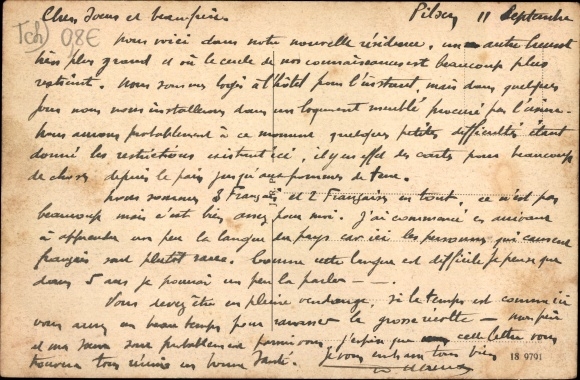 Chers Soeur et beau-frère. Pilsen 11 Septembre
Tch) 0,8€
nous voici dans notre nouvelle résidence, un autre
très plus grand et où le cercle de nos connaissances est beaucoup plus
restreint. Nous sommes logés à l'hôtel pour l'instant, mais dans quelques
jours nous nous installerons dans un logement meublé procuré par l'usine.
Nous aurons probablement à ce moment quelques petites difficultés étant
donné les restrictions existant ici, il y a en effet des cartes pour beaucoup
de choses depuis le pain jusqu'aux pommes de terre.
Nous sommes 3 Français et 2 Françaises en tout, ce n'est pas
beaucoup mais c'est bien assez pour moi. J'ai commencé en arrivant
à apprendre un peu la langue du pays car ici les personnes qui causent
français sont plutôt rares. Comme cette langue est difficile je pense que
dans 5 ans je pourrai un peu la parler - -.
Vous devez être en pleine vendange, si le temps est comme ici
vous aurez un beau temps pour ramasser la grosse récolte -
et ma soeur sont probablement parmi vous, j'espère que cette lettre vous
trouvera tous réunis en bonne santé. Je vous embrasse tous bien
18 9791